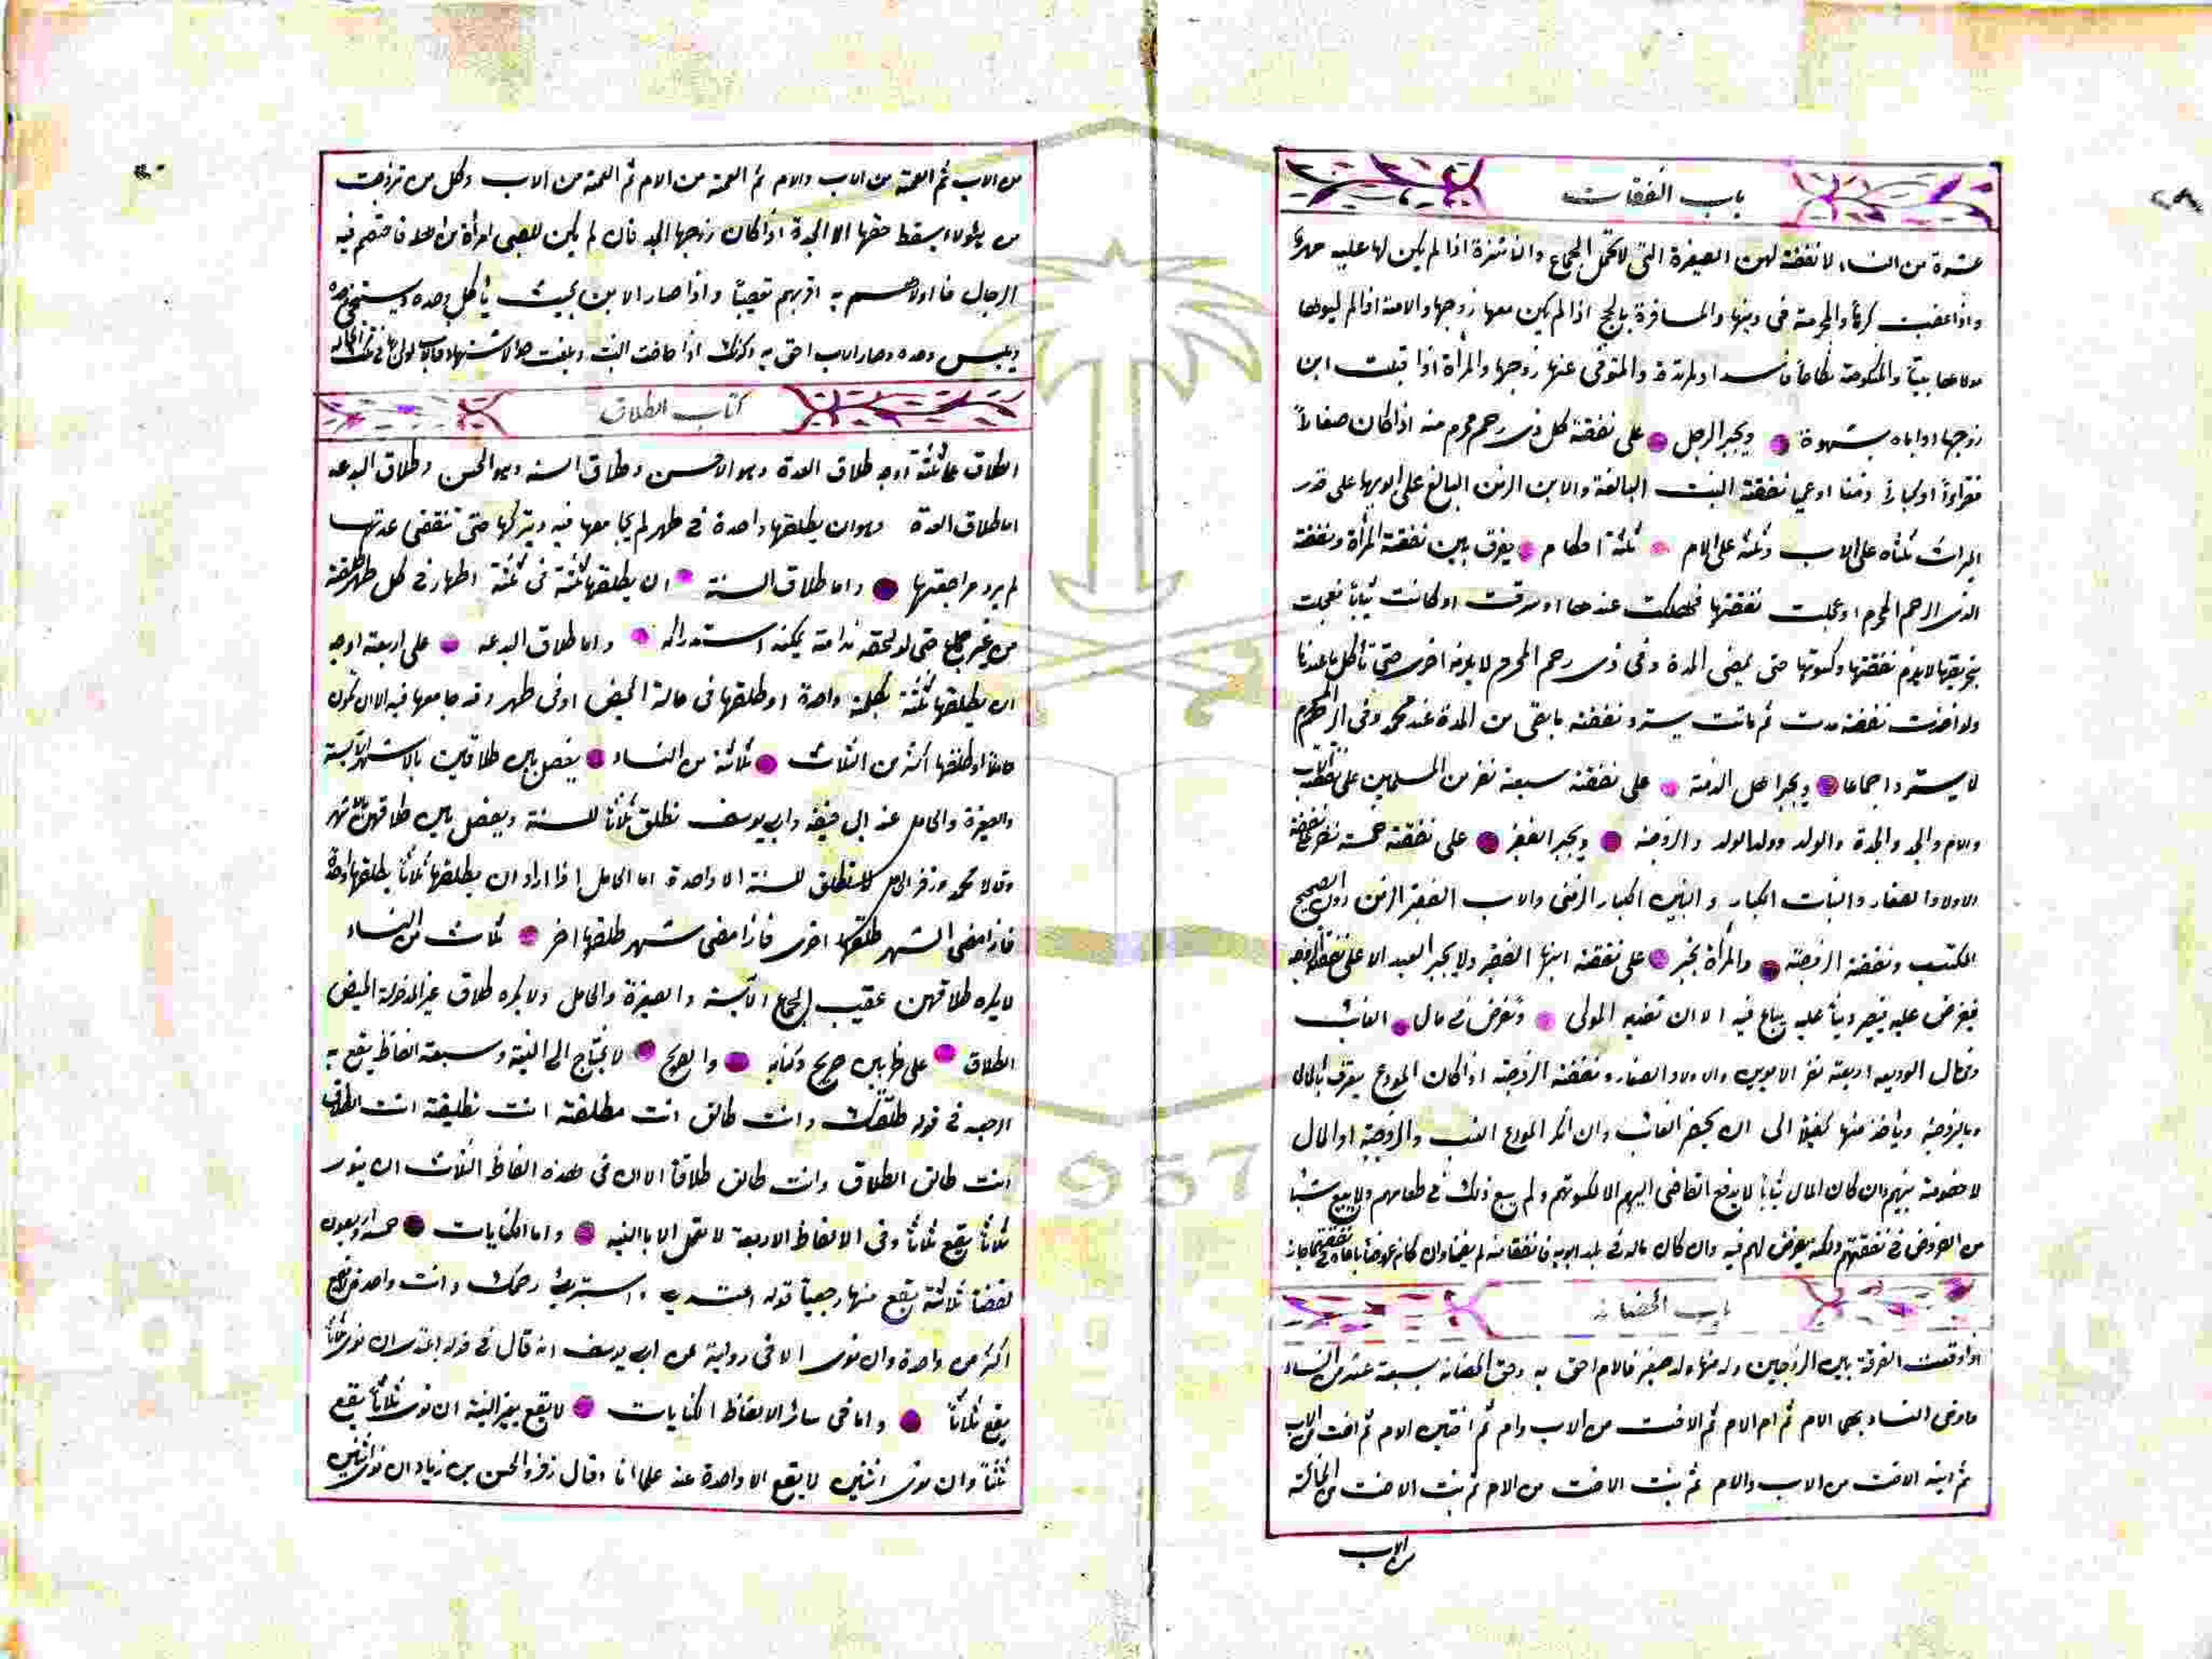 ٢٨
باب النفقات
عشرة من النساء لا نفقة لهن الصغيرة التى لا تحمل الجماع والناشزة اذا لم يكن لها عليه مهر
واذا غصبت كرها والمحرمة فى دينها والمسافرة بالحج اذا لم يكن معها زوجها والامة اذا لم
مولاها بيتا والمنكوحة نكاحا فاسدا والمرتدة والمتوفى عنها زوجها والمرأة اذا قبلت ابن
زوجها او اباه بشهوة ويجبر الرجل على نفقة كل ذى رحم محرم منه اذا كان صغارا
فقراء او كبارا زمنا او عمى نفقة البنت البالغة والابن الزمن البالغ على ابويها على قدر
الميراث ثلثاه على الاب وثلثه على الام ثلثة احكام يفرق بين نفقة المرأة ونفقة
الذى الرحم المحرم او عجلت نفقتها فهلكت عندها او سرقت او كانت ثيابا فعجلت
لا يلزم نفقتها وكسوتها حتى يمضى المدة وفى ذى رحم المحرم لا يلزمه اخرى حتى تأكل ما عندنا
ولو اخذت نفقة مدت ثم ماتت يسترد نفقة ما بقى من المدة عند محمد وفى الرحم المحرم
لا يسترد اجماعا ويجبر اهل الذمة على نفقة سبعة نفر من المسلمين على نفقة الاب
والام والجد والجدة والولد وولد الولد والزوجة ويجبر الفقير على نفقة خمسة نفر نفقة
الاولاد الصغار والبنات الكبار والبنين الكبار الزمنى والاب الفقير الزمن دون الصحيح
المكتسب ونفقة الزوجة والمرأة تجبر على نفقة ابنها الفقير ولا يجبر العبد الا على نفقة الزوجة
فيفرض عليه فيصير دينا عليه يباع فيه الا ان تفديه المولى وتفرض فى مال الغائب
ومال الوديعه اربعة نفر الابوين والاولاد الصغار ونفقة الزوجة اذا كان المودع يعترف بالمال
وبالزوجة ويأخذ منها كفيلا الى ان يحضر الغائب وان انكر المودع النسب والزوجية او المال
لا خصومة بينهم وان كان المال ثيابا لا يدفع القاضى اليهم الا لكسوتهم ولم يبع ذلك فى طعامهم ولا يبيع شيئا
من العروض فى نفقتهم ولكنه يفرض لهم فيه وان كان ماله فى يد ابويه فانفقا منه لم يضمنا وان كان عروضا باعا فى نفقتهما جاز
باب الحضانة
اذا وقعت الفرقة بين الزوجين وله منها ولد صغير فالام احق به وحق الحضانة سبعة عشر من النساء
النساء بهى الام ثم ام الام ثم الاخت من الاب وام ثم اختين الام ثم اخت من الاب
ثم ابنة الاخت من الاب والام ثم بنت الاخت من الام ثم بنت الاخت من الخالة
من الاب
من الاب ثم العمة من الاب والام ثم العمة من الام ثم العمة من الاب وكل من تزوجت
من هؤلاء يسقط حقها الا الجدة اذا كان زوجها الجد فان لم يكن للصبى امرأة من اهله فاختصم فيه
الرجال فاولاهم به اقربهم تعصيبا واذا صار الابن بحيث يأكل وحده ويستنجى وحده
ويلبس وحده وصار الاب احق به وكذلك اذا حاضت البنت وبلغت حد الاشتهاء فالاب اولى بها
كتاب الطلاق
الطلاق على ثلثة اوجه طلاق العدة وهو الاحسن وطلاق السنه وهو الحسن وطلاق البدعه
اما طلاق العدة وهو ان يطلقها واحدة فى طهر لم يجامعها فيه ويتركها حتى تنقضى عدتها
لم يرد مراجعتها واما طلاق السنة ان يطلقها ثلثة فى ثلثة اطهار فى كل طهر طلقة
من غير جماع حتى لو لحقه ندامة يمكنه استدراكه واما طلاق البدعه على اربعة اوجه
ان يطلقها ثلثة بكلمة واحدة او طلقها فى حالة الحيض او فى طهر وقد جامعها فيه الا ان تكون
حاملا او طلقها اكثر من الثلاث ثلاثة من النساء يفصل بين طلاقين بالاشهر الآيسة
والصغيرة والحامل عند ابى حنيفة وابى يوسف تطلق ثلاثا للسنة ويفصل بين طلاقهن شهر
وقالا محمد وزفر الحامل لا تطلق للسنة الا واحدة اما الحامل اذا اراد ان يطلقها ثلاثا يطلقها واحدة
فاذا مضى الشهر طلقها اخرى فاذا مضى شهر طلقها اخر ثلاث من النساء
لا يكره طلاقهن عقيب الجماع الآيسة والصغيرة والحامل ولا يكره طلاق غير المدخولة الحيض
الطلاق على ضربين صريح وكنايه والصريح لا يحتاج الى النية وسبعة الفاظ يقع به
الرجعيه فى قوله طلقتك وانت طالق انت مطلقة انت تطليقة انت الطلاق
انت طالق الطلاق وانت طالق طلاقا الا ان فى هذه الفاظ الثلاث ان ينوى
ثلاثا يقع ثلاثا وفى الالفاظ الاربعة لا تعمل الا بالنيه واما الكنايات خمسة اربعون
لفظا ثلاثة يقع منها رجعيا قوله اعتدى واستبرئ رحمك وانت واحدة
اكثر من واحدة وان نوى الا فى رواية عن ابى يوسف انه قال فى قوله اعتدى ان نوى ثلاثا
يقع ثلاثا واما فى سائر الالفاظ الكنايات لا يقع بغير النية ان نوى ثلاثا يقع
ثلثا وان نوى اثنين لا يقع الا واحدة عند علمائنا وقال زفر والحسن بن زياد ان نوى اثنين